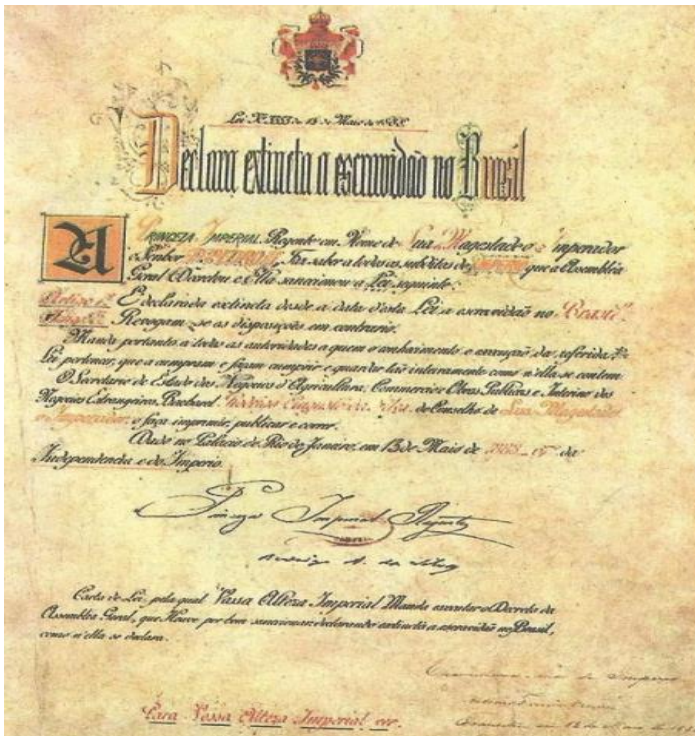 Lei Nº 3353 de 13 de Maio de 1888
Declara extincta a escravidão no Brasil
A PRINCEZA IMPERIAL Regente em Nome de Sua Magestade o Imperador
o Senhor D. PEDRO II, Faz saber a todos os subditos do IMPERIO que a Assembléa
Geral Decretou e Ella sanccionou a Lei seguinte:
Artigo 1º É declarada extincta desde a data d'esta Lei a escravidão no Brasil.
Revogam-se as disposições em contrario.
Manda portanto a todas as autoridades a quem o conhecimento e execução da referida
Lei pertencer, que a cumpram e façam cumprir e guardar tão inteiramente como n'ella se contem
O Secretario de Estado dos Negocios d'Agricultura, Commercio e Obras Publicas e Interino dos
Negocios Estrangeiros, Bacharel Rodrigo Augusto da Silva, do Conselho de Sua Magestade
o Imperador, o faça imprimir, publicar e correr.
Dado no Palacio do Rio de Janeiro, em 13 de Maio de 1888 67º da
Independencia e do Imperio.
Princeza Imperial Regente
Rodrigo A. da Silva
Carta de Lei, pela qual Vossa Alteza Imperial Manda executar o Decreto da
Assembléa Geral, que Houve por bem sanccionar declarando extincta a escravidão no Brasil,
como n'ella se declara.
Para Vossa Alteza Imperial ver.